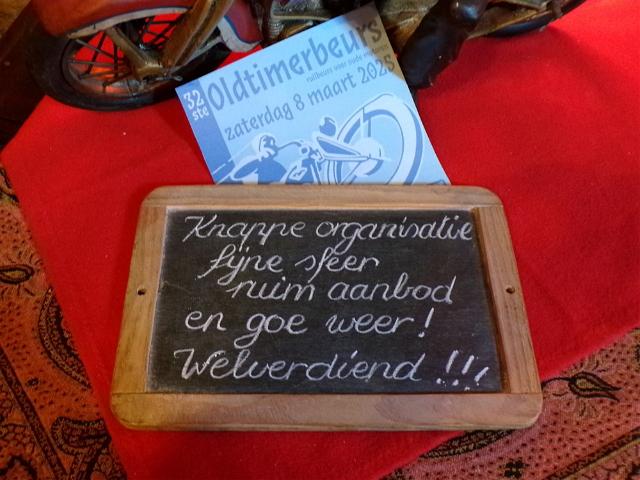 32
ste
Oldtimerbeurs
ruilbeurs voor oude
zaterdag 8 maart 2025
Knappe organisatie
fijne sfeer
ruim aanbod
en goe weer!
Welverdiend !!!